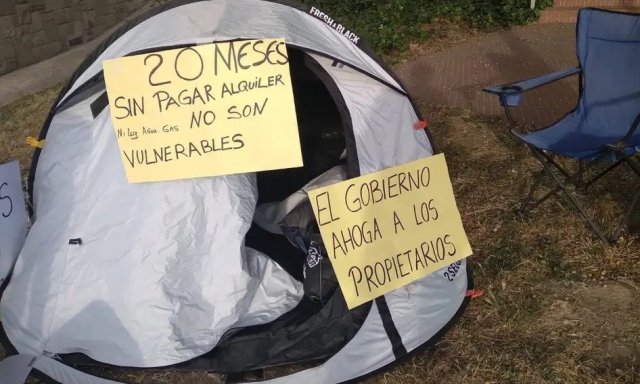 FRESH & BLACK
20 MESES
SIN PAGAR ALQUILER
Ni Luz Agua Gas NO SON
VULNERABLES
EL GOBIERNO
AHOGA A LOS
PROPIETARIOS